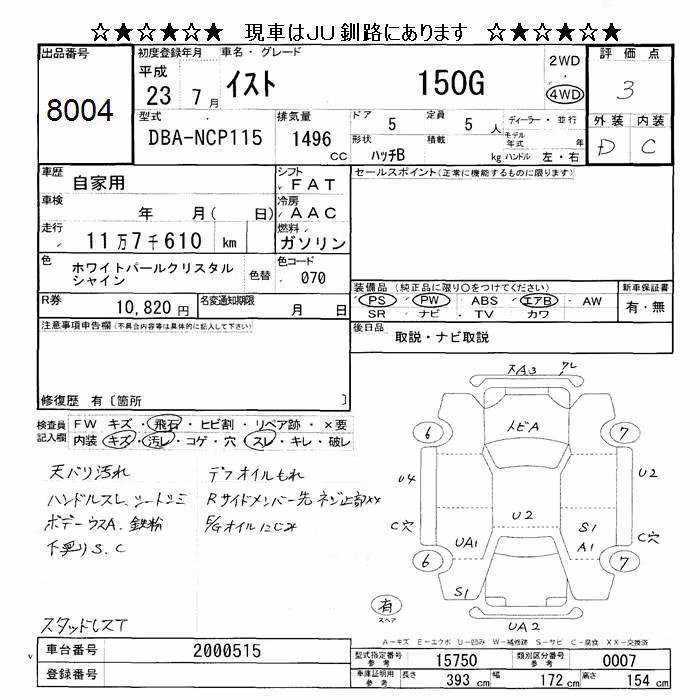 ☆★☆★☆★ 現車はJU釧路にあります ☆★☆★☆★
出品番号 8004
初度登録年月 平成 23年 7月
車名・グレード イスト 150G
2WD 4WD
評価点 3
外装 D 内装 C
型式 DBA-NCP115
排気量 1496 CC
ドア 5 定員 5 人
形状 ハッチB 積載 kg
ディーラー・並行
モデル年式 年
ハンドル 左・右
車歴 自家用
シフト FAT
車検 年 月( 日)
冷房 AAC
走行 11万7千610 km
燃料 ガソリン
色 ホワイトパールクリスタルシャイン 色替
色コード 070
R券 10,820円
名変通知期限 月 日
セールスポイント(正常に機能するものに限ります)
装備品 (純正品に限り○をつけてください)
PS・PW・ABS・エアB・AW
SR・ナビ・TV・カワ
新車保証書 有・無
後日品 取説・ナビ取説
注意事項申告欄(不具合内容等は具体的に記入して下さい)
修復歴 有〔箇所 〕
検査員記入欄
FW キズ・飛石・ヒビ割・リペア跡・×要
内装 キズ・汚レ・コゲ・穴・スレ・キレ・破レ
天バリ汚れ
ハンドルスレ シートシミ
ボデーウスA. 鉄粉
下廻りS.C
デフオイルもれ
Rサイドメンバー先ネジ止部××
E/Gオイルにじみ
スタッドレスT
スA3 アレ
トビA
6 7
U4 U2
C穴 U2 S1 C穴
UA1 A1
6 7
S1
有 スペア
UA2
A-キズ E-エクボ U-凹み W-補修跡 S-サビ C-腐食 XX-交換済
車台番号 2000515
登録番号
型式指定番号 参考 15750 類別区分番号 参考 0007
車庫証明用 参考 長さ 393 cm 幅 172 cm 高さ 154 cm